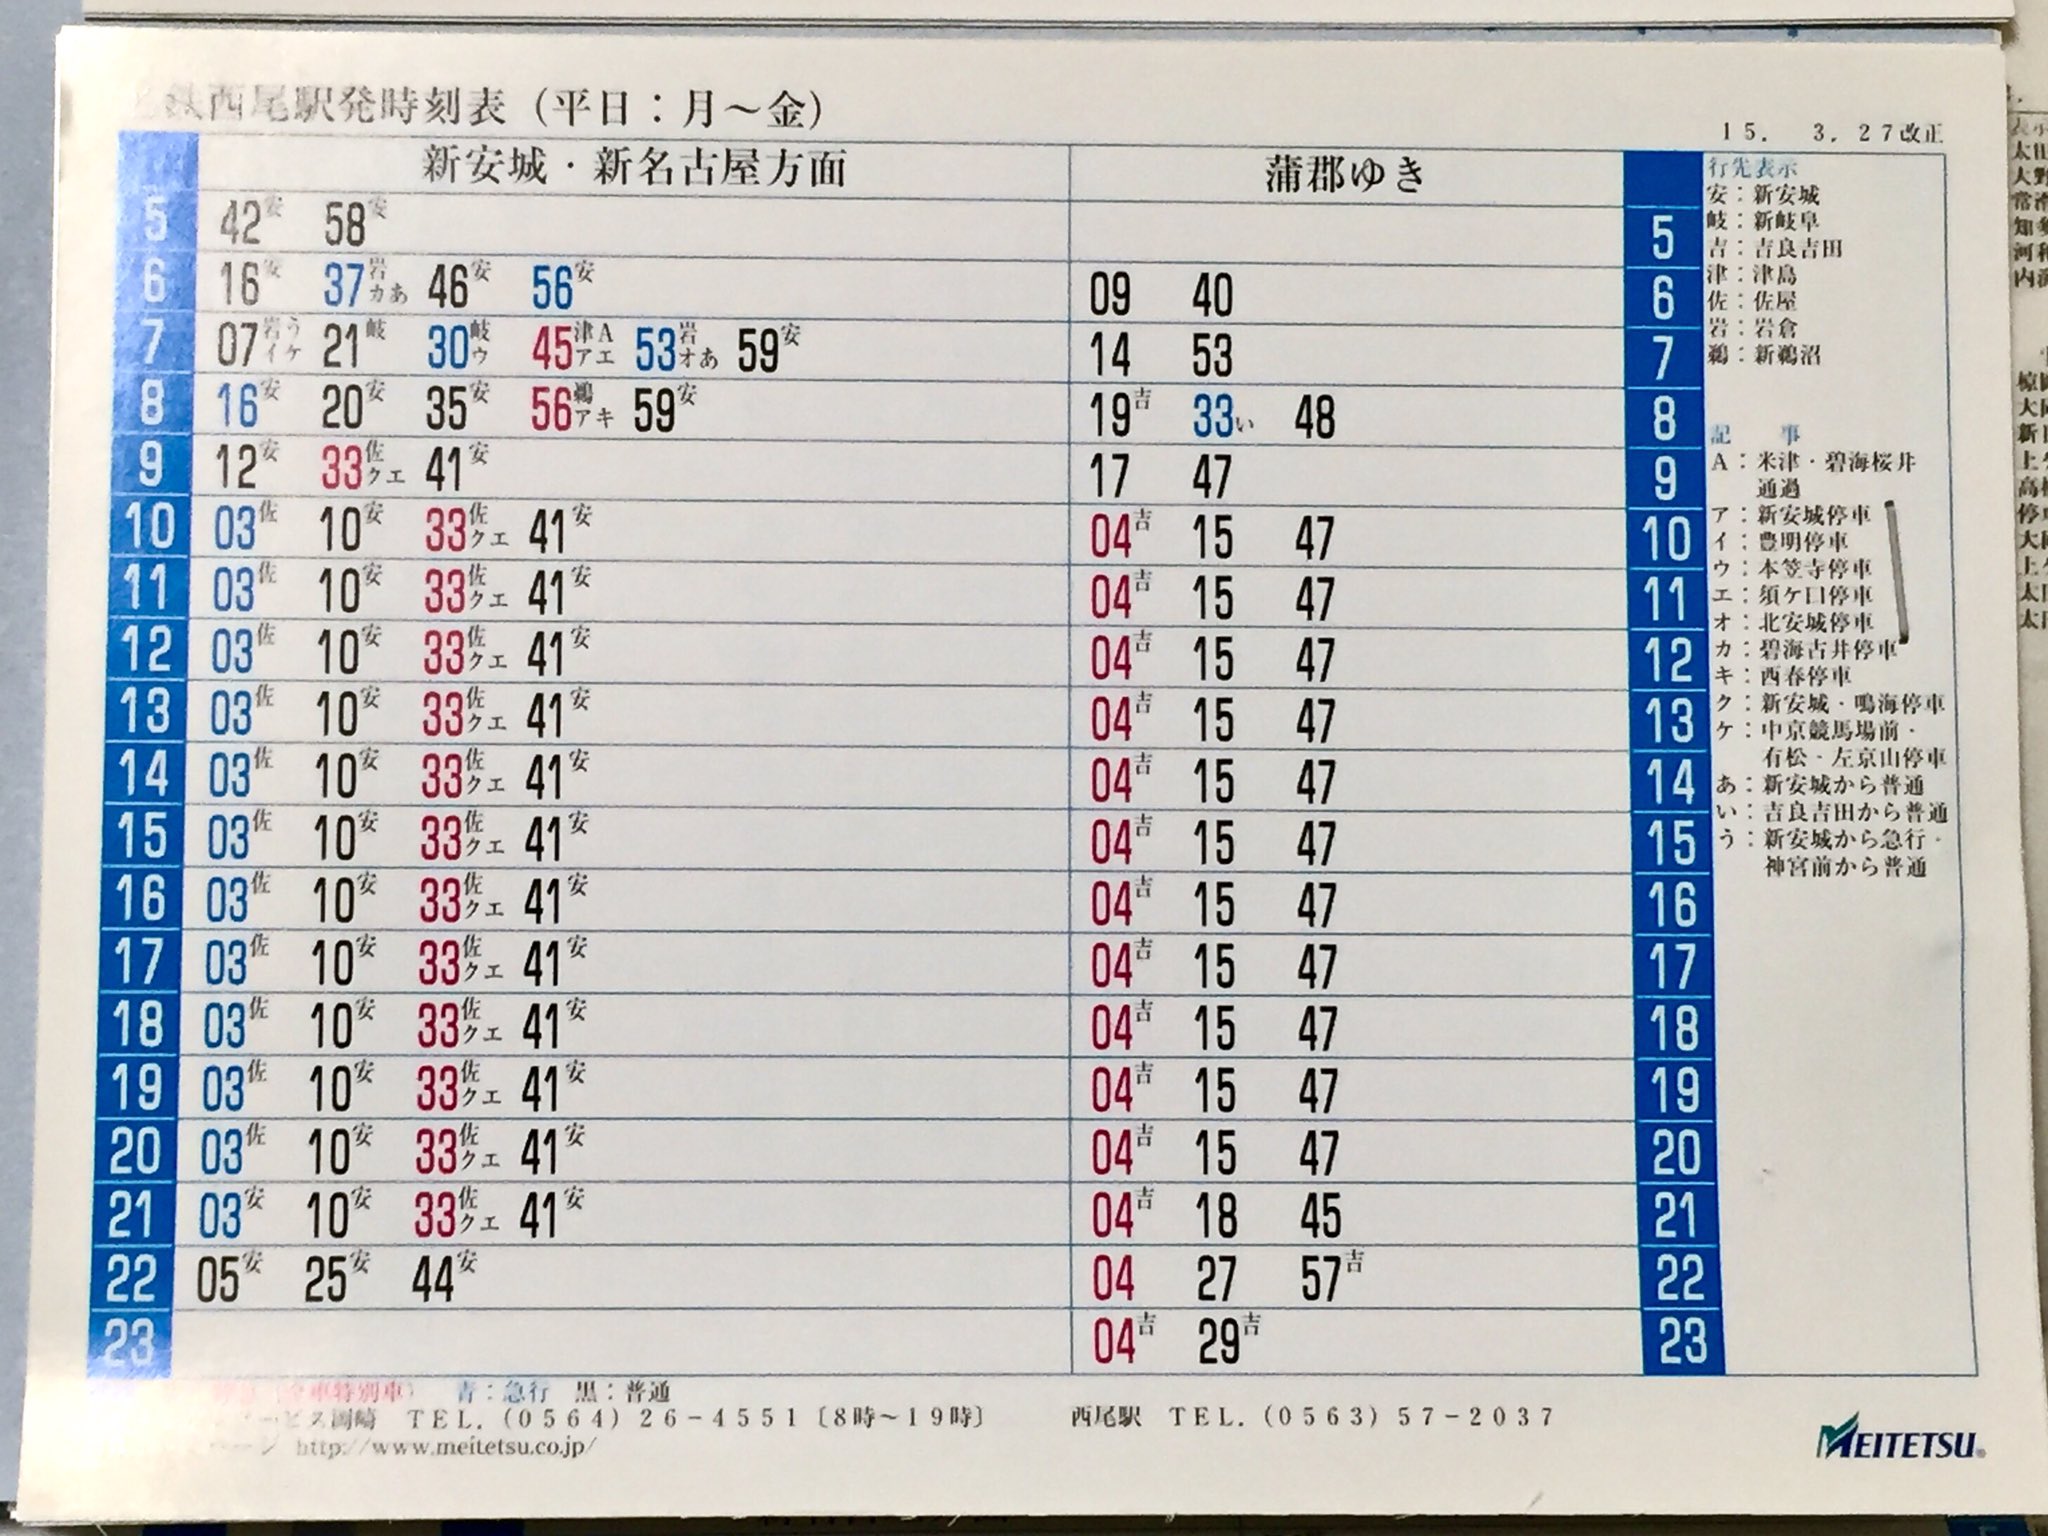 鉄西尾駅発時刻表（平日：月～金）
15. 3.27改正
新安城・新名古屋方面 蒲郡ゆき
5 42安 58安 5
6 16安 37岩カあ 46安 56安 09 40 6
7 07岩うイケ 21岐 30岐ウ 45津Aアエ 53岩オあ 59安 14 53 7
8 16安 20安 35安 56鵜アキ 59安 19吉 33い 48 8
9 12安 33佐クエ 41安 17 47 9
10 03佐 10安 33佐クエ 41安 04吉 15 47 10
11 03佐 10安 33佐クエ 41安 04吉 15 47 11
12 03佐 10安 33佐クエ 41安 04吉 15 47 12
13 03佐 10安 33佐クエ 41安 04吉 15 47 13
14 03佐 10安 33佐クエ 41安 04吉 15 47 14
15 03佐 10安 33佐クエ 41安 04吉 15 47 15
16 03佐 10安 33佐クエ 41安 04吉 15 47 16
17 03佐 10安 33佐クエ 41安 04吉 15 47 17
18 03佐 10安 33佐クエ 41安 04吉 15 47 18
19 03佐 10安 33佐クエ 41安 04吉 15 47 19
20 03佐 10安 33佐クエ 41安 04吉 15 47 20
21 03安 10安 33佐クエ 41安 04吉 18 45 21
22 05安 25安 44安 04 27 57吉 22
23 04吉 29吉 23
行先表示
安：新安城
岐：新岐阜
吉：吉良吉田
津：津島
佐：佐屋
岩：岩倉
鵜：新鵜沼
記 事
A：米津・碧海桜井
通過
ア：新安城停車
イ：豊明停車
ウ：本笠寺停車
エ：須ケ口停車
オ：北安城停車
カ：碧海古井停車
キ：西春停車
ク：新安城・鳴海停車
ケ：中京競馬場前・
有松・左京山停車
あ：新安城から普通
い：吉良吉田から普通
う：新安城から急行・
神宮前から普通
車特別車） 青：急行 黒：普通
ービス岡崎 TEL.（0564）26-4551〔8時～19時〕 西尾駅 TEL.（0563）57-2037
ページ http://www.meitetsu.co.jp/
MEITETSU